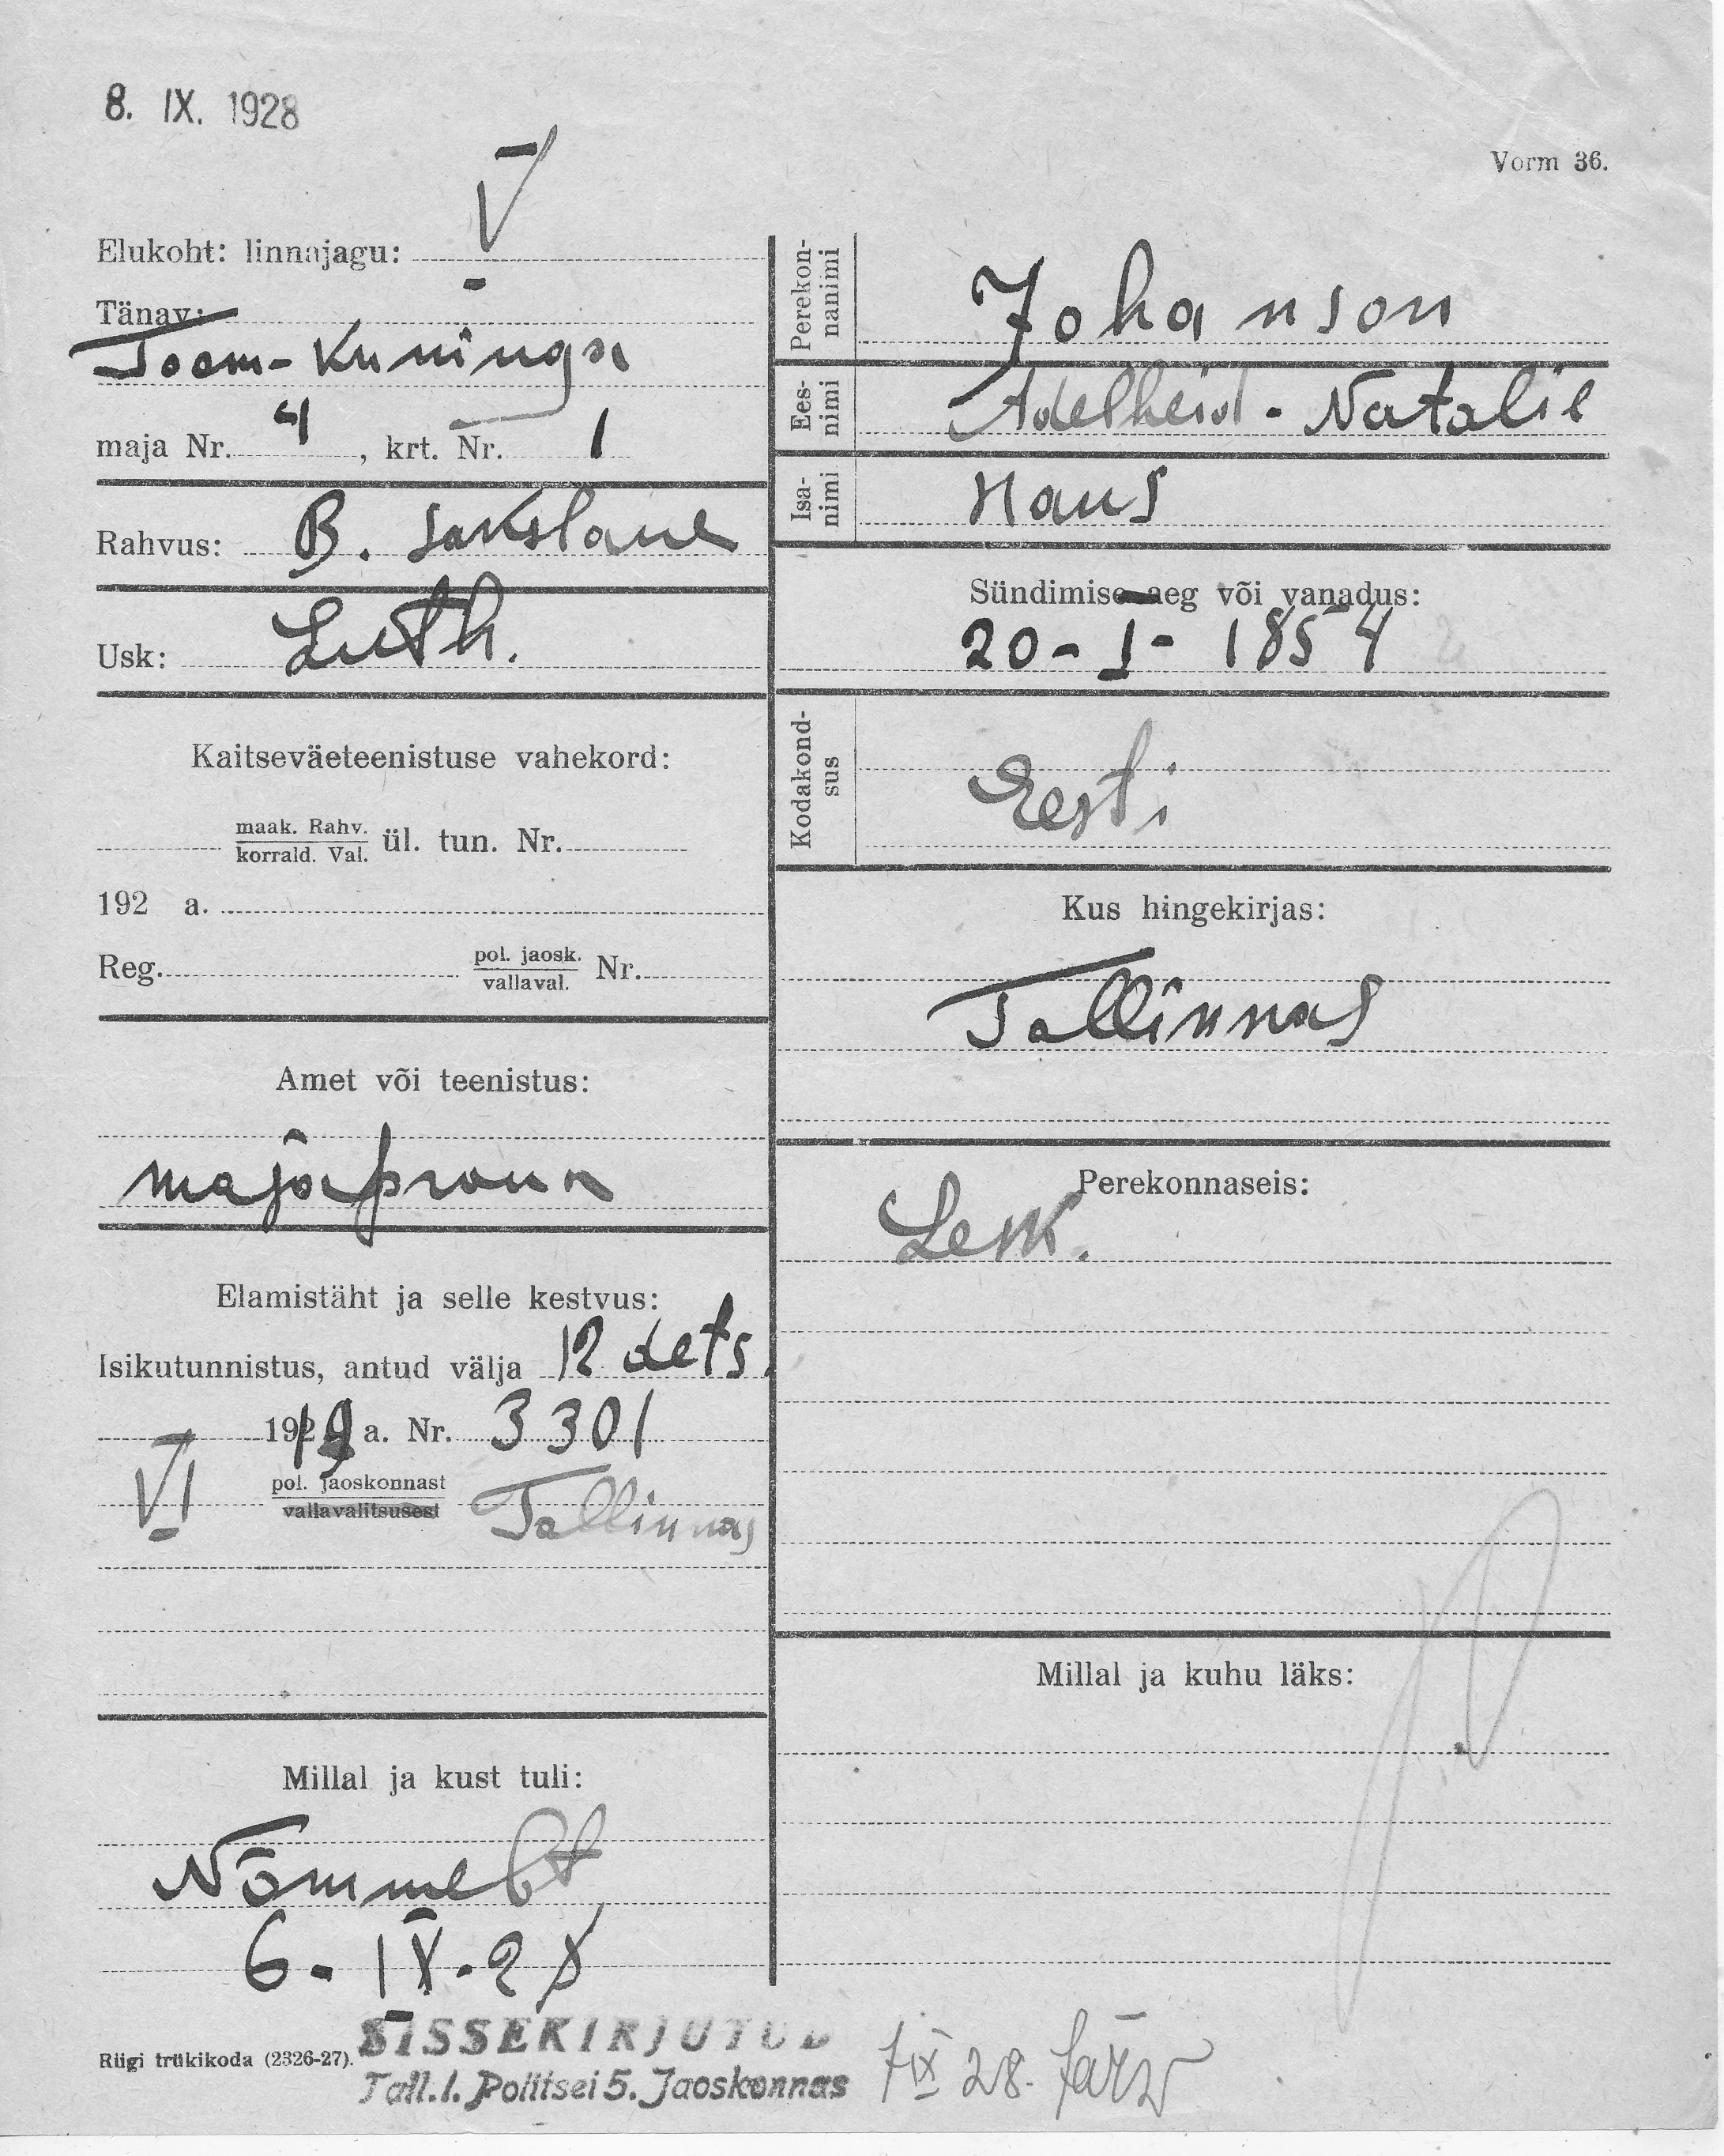 8. IX. 1928
Vorm 36.
Elukoht: linnajagu: V
Tänav:
Toom-Kuninga
maja Nr. 4, krt. Nr. 1
Rahvus: B. sakslane
Usk: Luth.
Kaitseväeteenistuse vahekord:
maak. Rahv.
korrald. Val. ül. tun. Nr.
192 a.
Reg. pol. jaosk.
vallaval. Nr.
Amet või teenistus:
majaproua
Elamistäht ja selle kestvus:
Isikutunnistus, antud välja 12 dets.
1919 a. Nr. 3301
VI pol. jaoskonnast
vallavalitsusest Tallinnas
Millal ja kust tuli:
Nõmmelt
6-IX-28
Riigi trükikoda (2326-27).
Perekonnanimi Johanson
Eesnimi Adelheid-Natalie
Isanimi Hans
Sündimise aeg või vanadus:
20-I-1854
Kodakondsus
Eesti
Kus hingekirjas:
Tallinnas
Perekonnaseis:
Lesk.
Millal ja kuhu läks:
SISSEKIRJUTUD
Tall.l. Politsei 5. Jaoskonnas
7 IX 28.